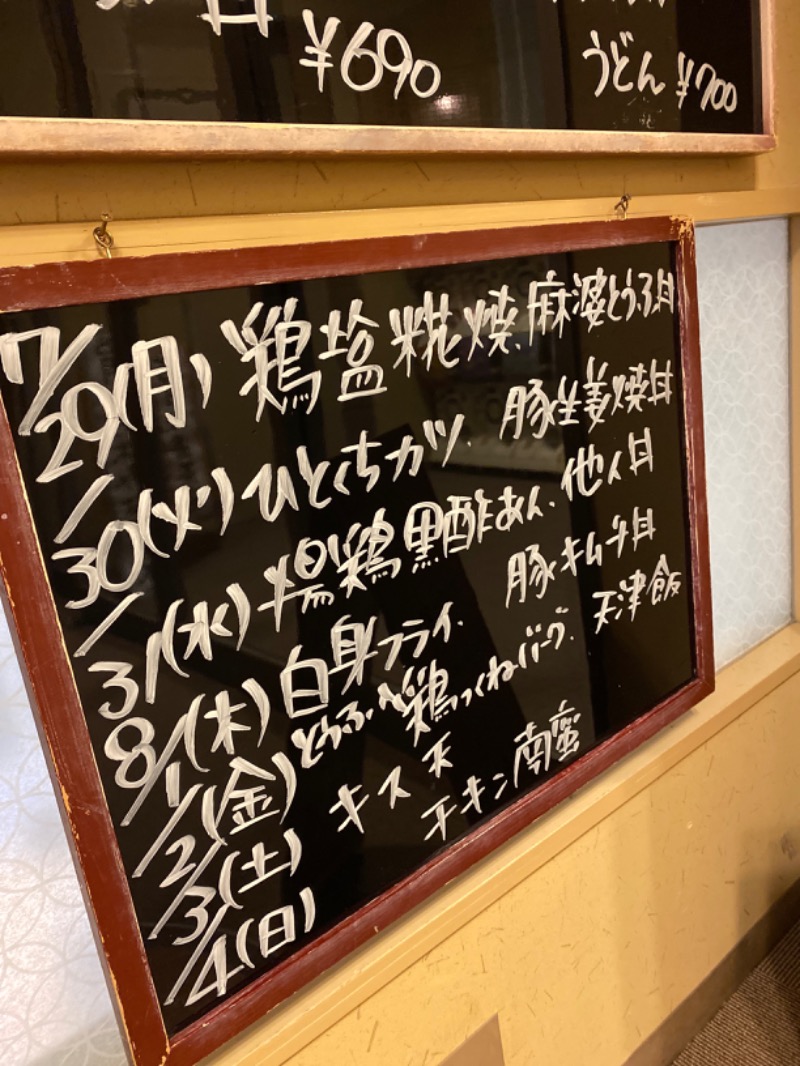 ¥690
うどん ¥700
7/29(月) 鶏塩糀焼、麻婆とうふ丼
/30(火) ひとくちカツ、豚生姜焼丼
/31(水) 揚鶏黒酢あん、他人丼
8/1(木) 白身フライ、豚キムチ丼
/2(金) とうふ入鶏つくねバーグ、天津飯
/3(土) キス天
/4(日) チキン南蛮